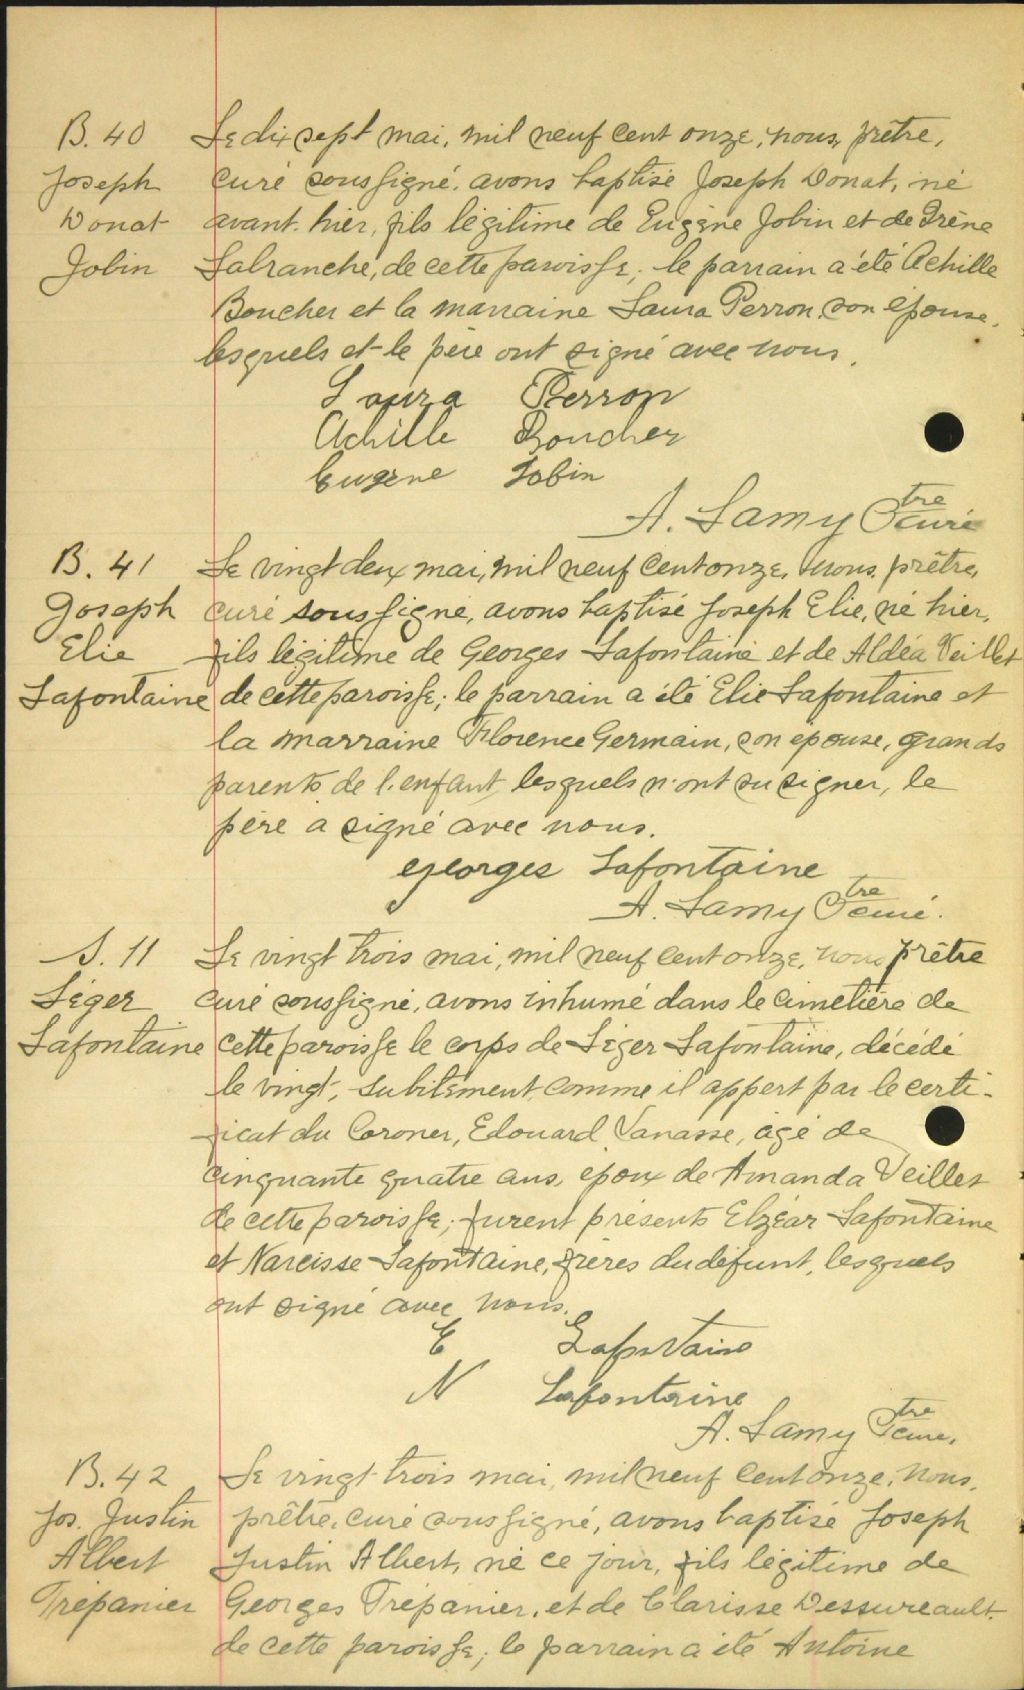 B. 40
Joseph
Donat
Jobin
Le dix sept mai, mil neuf cent onze, nous, prêtre,
curé soussigné, avons baptisé Joseph Donat, né
avant-hier, fils légitime de Eugène Jobin et de Irène
Labranche, de cette paroisse; le parrain a été Achille
Boucher et la marraine Laura Perron, son épouse,
lesquels et le père ont signé avec nous.
Laura Perron
Achille Boucher
Eugene Jobin
A. Lamy Ptre curé
B. 41
Joseph
Elie
Lafontaine
Le vingt deux mai, mil neuf cent onze, nous, prêtre,
curé soussigné, avons baptisé Joseph Elie, né hier,
fils légitime de Georges Lafontaine et de Aldéa Veillet
de cette paroisse; le parrain a été Elie Lafontaine et
la marraine Florence Germain, son épouse, grands
parents de l'enfant, lesquels n'ont su signer, le
père a signé avec nous.
georges Lafontaine
A. Lamy Ptre curé.
S. 11
Léger
Lafontaine
Le vingt trois mai, mil neuf cent onze, nous prêtre
curé soussigné, avons inhumé dans le cimetière de
cette paroisse le corps de Léger Lafontaine, décédé
le vingt, subitement, comme il appert par le certi-
ficat du Coroner, Edouard Vanasse, âgé de
cinquante quatre ans, époux de Amanda Veillet
de cette paroisse; furent présents Elzéar Lafontaine
et Narcisse Lafontaine, frères du défunt, lesquels
ont signé avec nous.
E Lafontaine
N Lafontaine
A. Lamy Ptre curé.
B. 42
Jos. Justin
Albert
Trépanier
Le vingt-trois mai, mil neuf cent onze, nous,
prêtre, curé soussigné, avons baptisé Joseph
Justin Albert, né ce jour, fils légitime de
Georges Trépanier, et de Clarisse Dessureault
de cette paroisse; le parrain a été Antoine